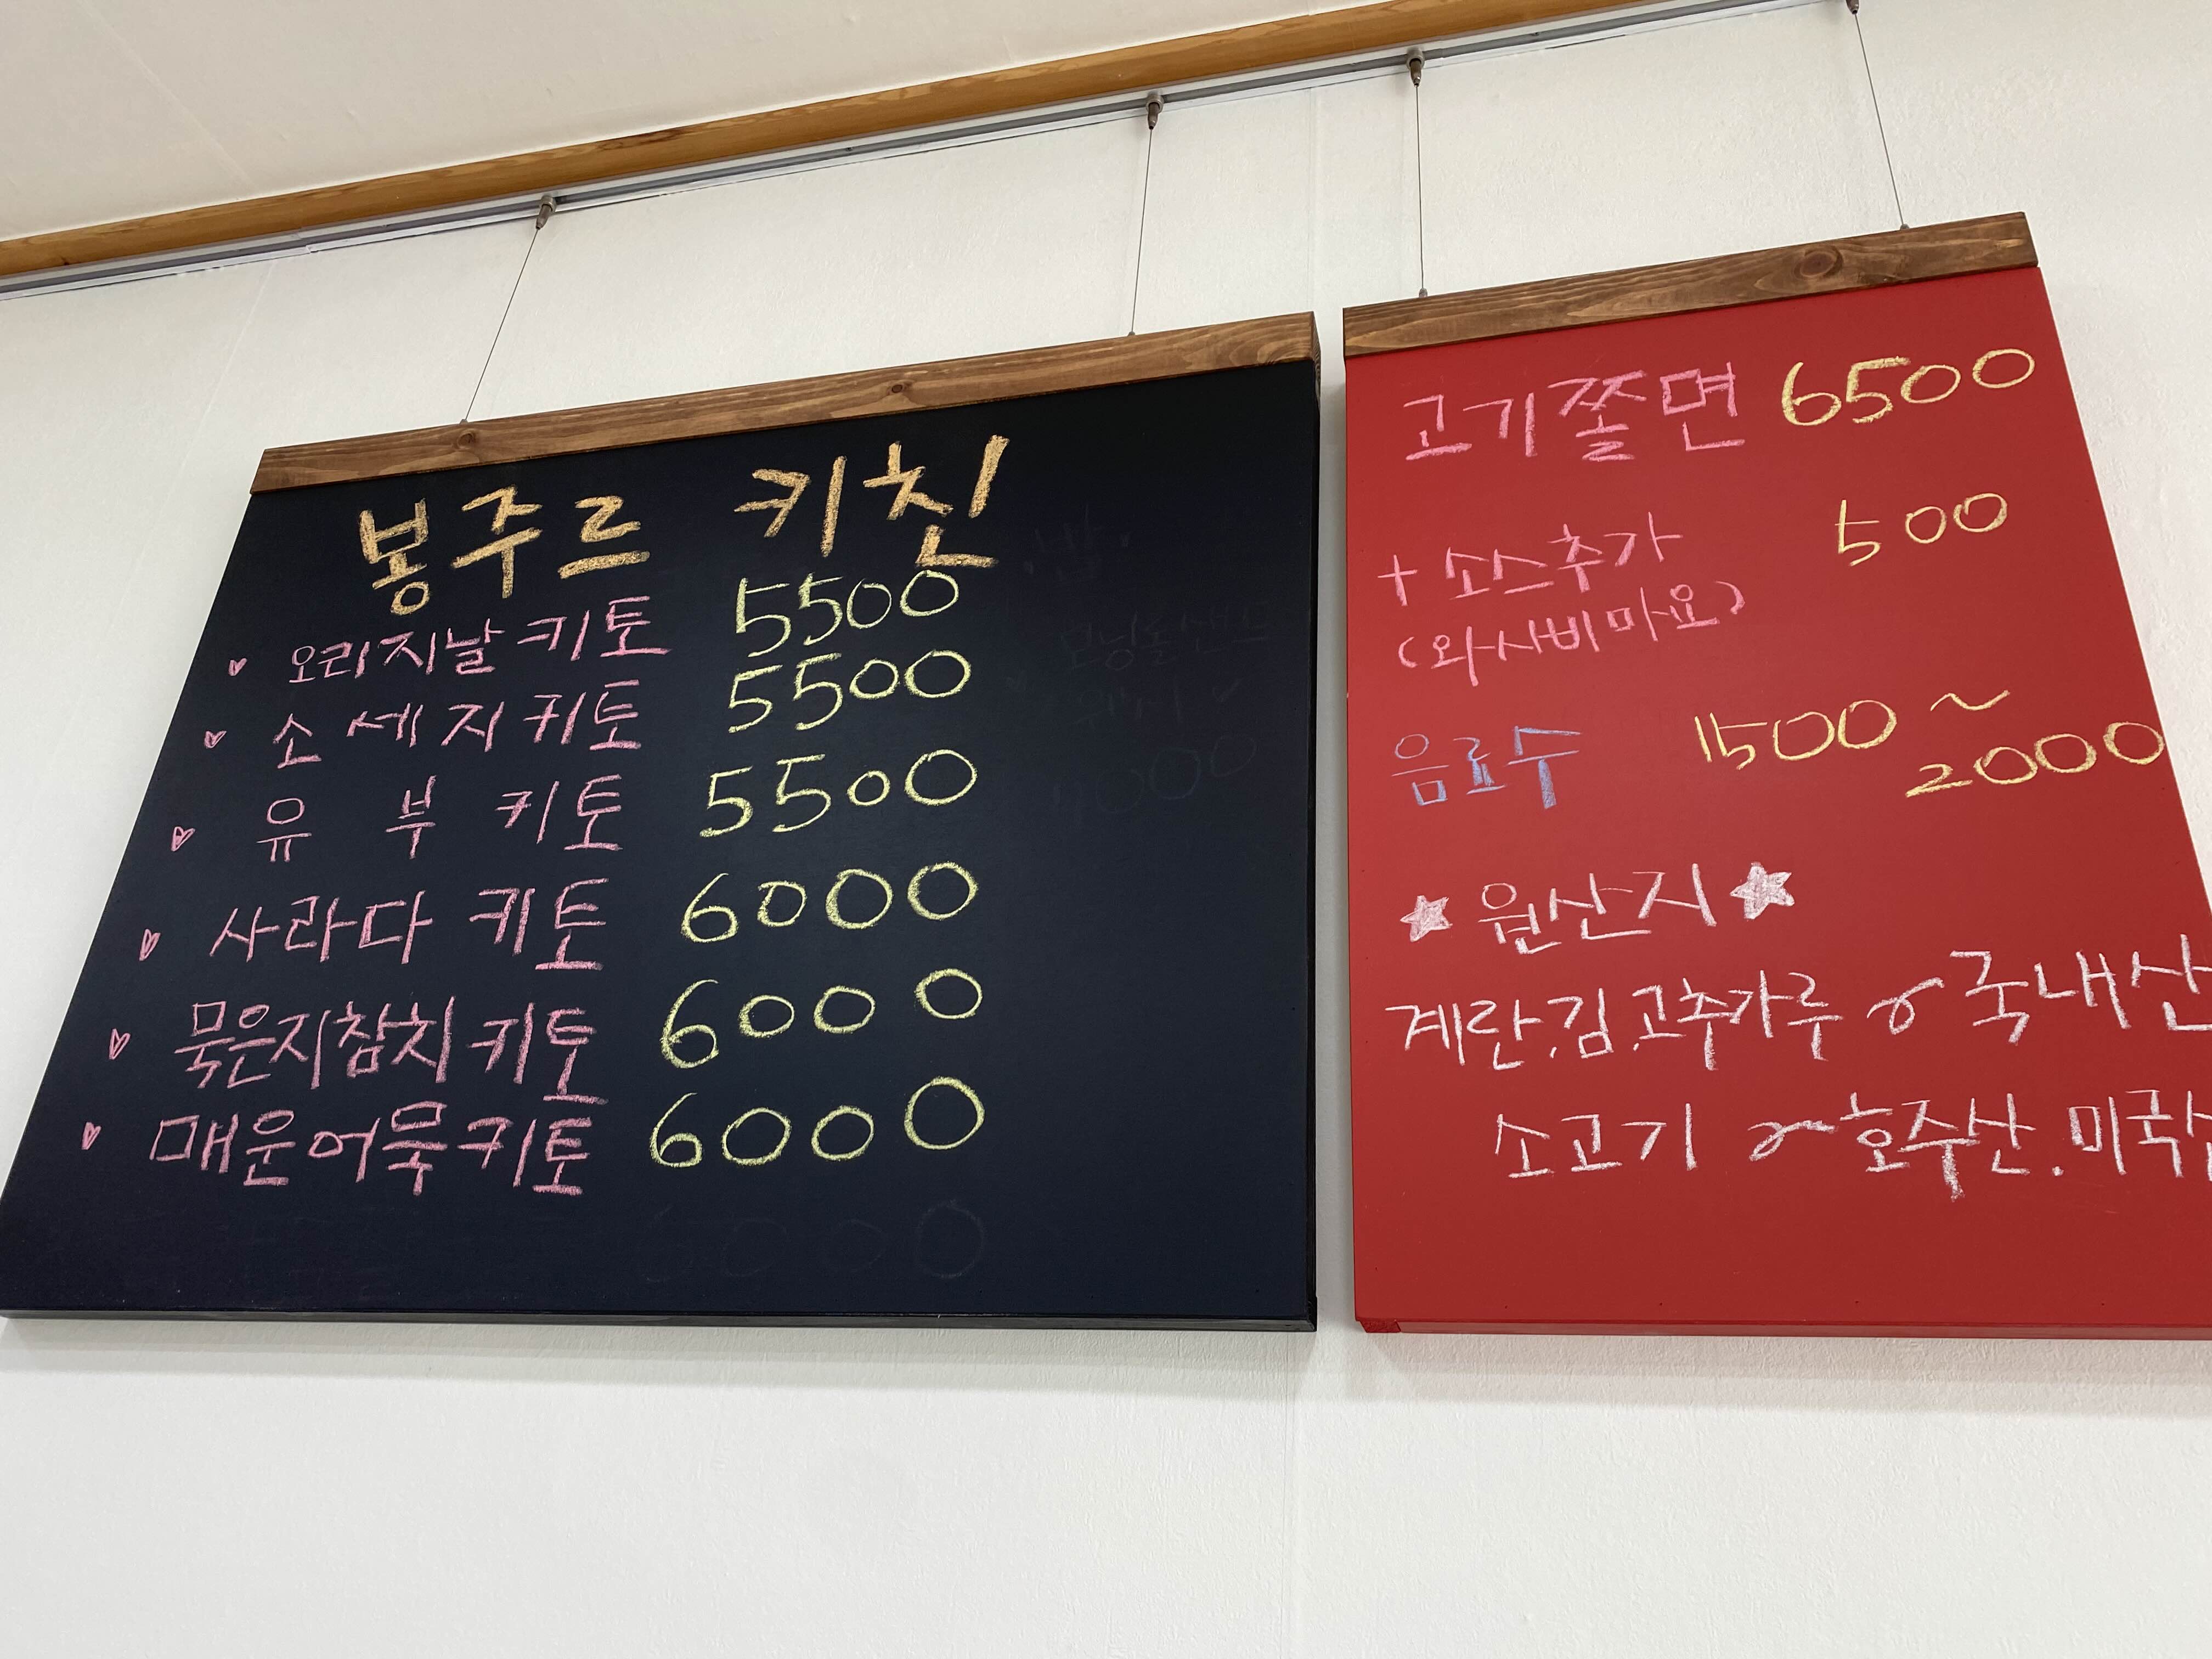 봉주르 키친
오리지날키토 5500
소세지키토 5500
유부키토 5500
사라다 키토 6000
묵은지참치키토 6000
매운어묵키토 6000
고기쫄면 6500
+ 소스추가 500
(와사비마요)
음료수 1500 ~
2000
★ 원산지 ★
계란.김.고추가루 국내산
소고기 ~ 호주산.미국산